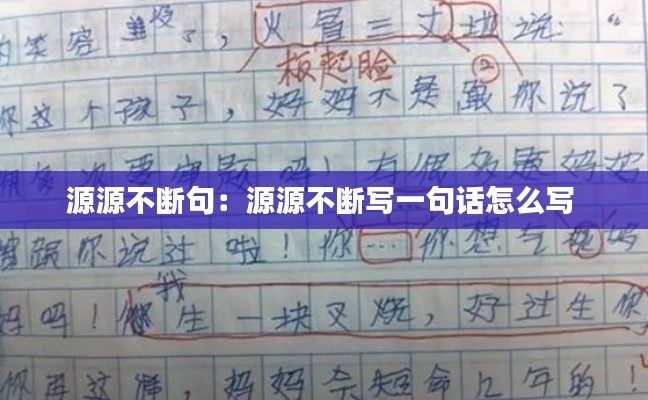 的笑容 没了，火冒三丈地说：“
板起脸 ②
你这个孩子，妈妈不是跟你说了
源源不断句：源源不断写一句话怎么写
跟你说过啦！你…你想气死妈
妈吗！我生一块叉烧，好过生你
你再这样，妈妈会短命几年的！